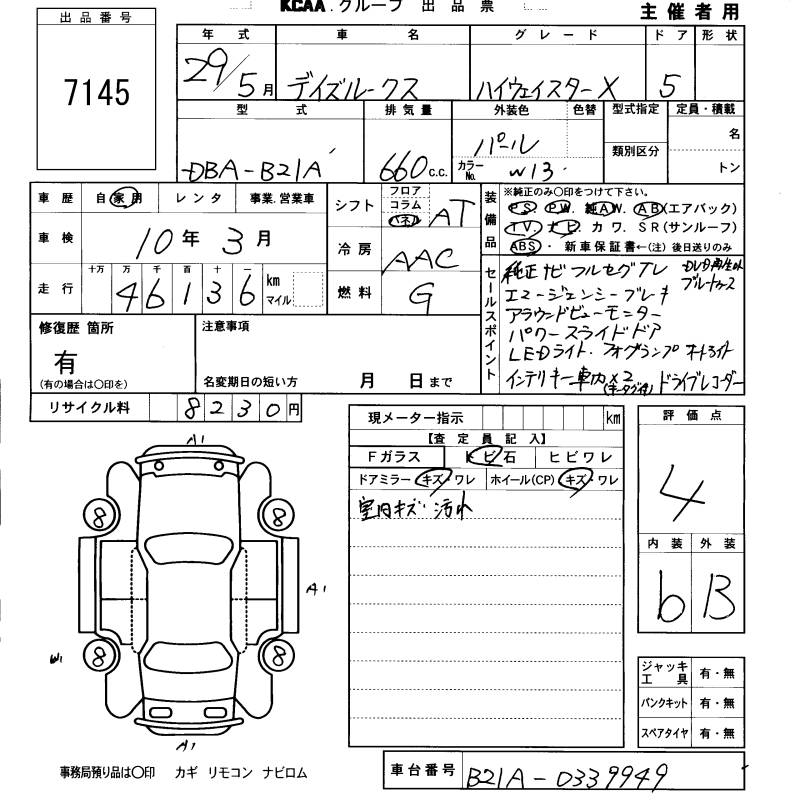 KCAA.グループ 出品票
主催者用
出品番号
7145
年式 車名 グレード ドア 形状
29/5月 デイズルークス ハイウェイスターX 5
型式 排気量 外装色 色替 型式指定 定員・積載
類別区分 名
トン
DBA-B21A 660c.c. パール カラーNo. W13
車歴 自家用 レンタ 事業.営業車
車検 10年3月
走行 十万 万 千 百 十 一
46136 km マイル
シフト フロア コラム パネル AT
冷房 AAC
燃料 G
装備品
※純正のみ〇印をつけて下さい。
PS. PW. 純AW. AB(エアバック)
TV. ナビ. カワ. SR(サンルーフ)
ABS・ 新車保証書←(注)後日送りのみ
セールスポイント
純正ナビ フルセグTV DVD再生OK
エマージェンシーブレーキ ブルートゥース
アラウンドビューモニター
パワースライドドア
LEDライト.フォグランプ オートライト
インテリキー車内×2 ドライブレコーダー
修復歴 箇所 注意事項
有
(有の場合は〇印を)
名変期日の短い方 月 日まで
リサイクル料 8230円
現メーター指示 km
【査定員記入】
Fガラス トビ石 ヒビワレ
ドアミラー キズ・ワレ ホイール(CP) キズ・ワレ
室内キズ 汚れ
評価点
4
内装 外装
b B
A1
8 8
A1
W1
8 8
A1
ジャッキ工具 有・無
パンクキット 有・無
スペアタイヤ 有・無
事務局預り品は〇印 カギ リモコン ナビロム
車台番号 B21A-0339949